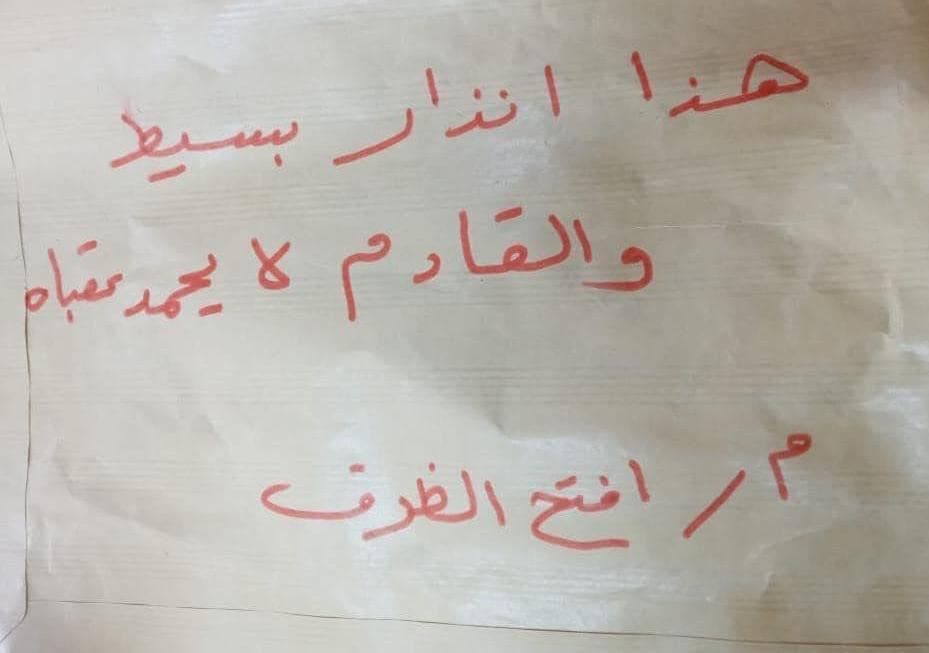 هذا انذار بسيط
والقادم لا يحمد عقباه
م/ افتح الظرف